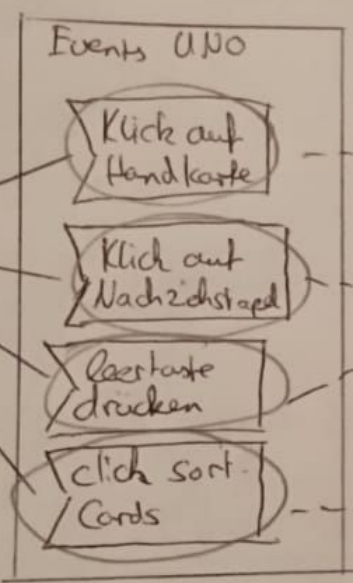 Events UNO
Klick auf
Handkarte
Klick auf
Nachziehstapel
leertaste
drücken
click sort
Cards